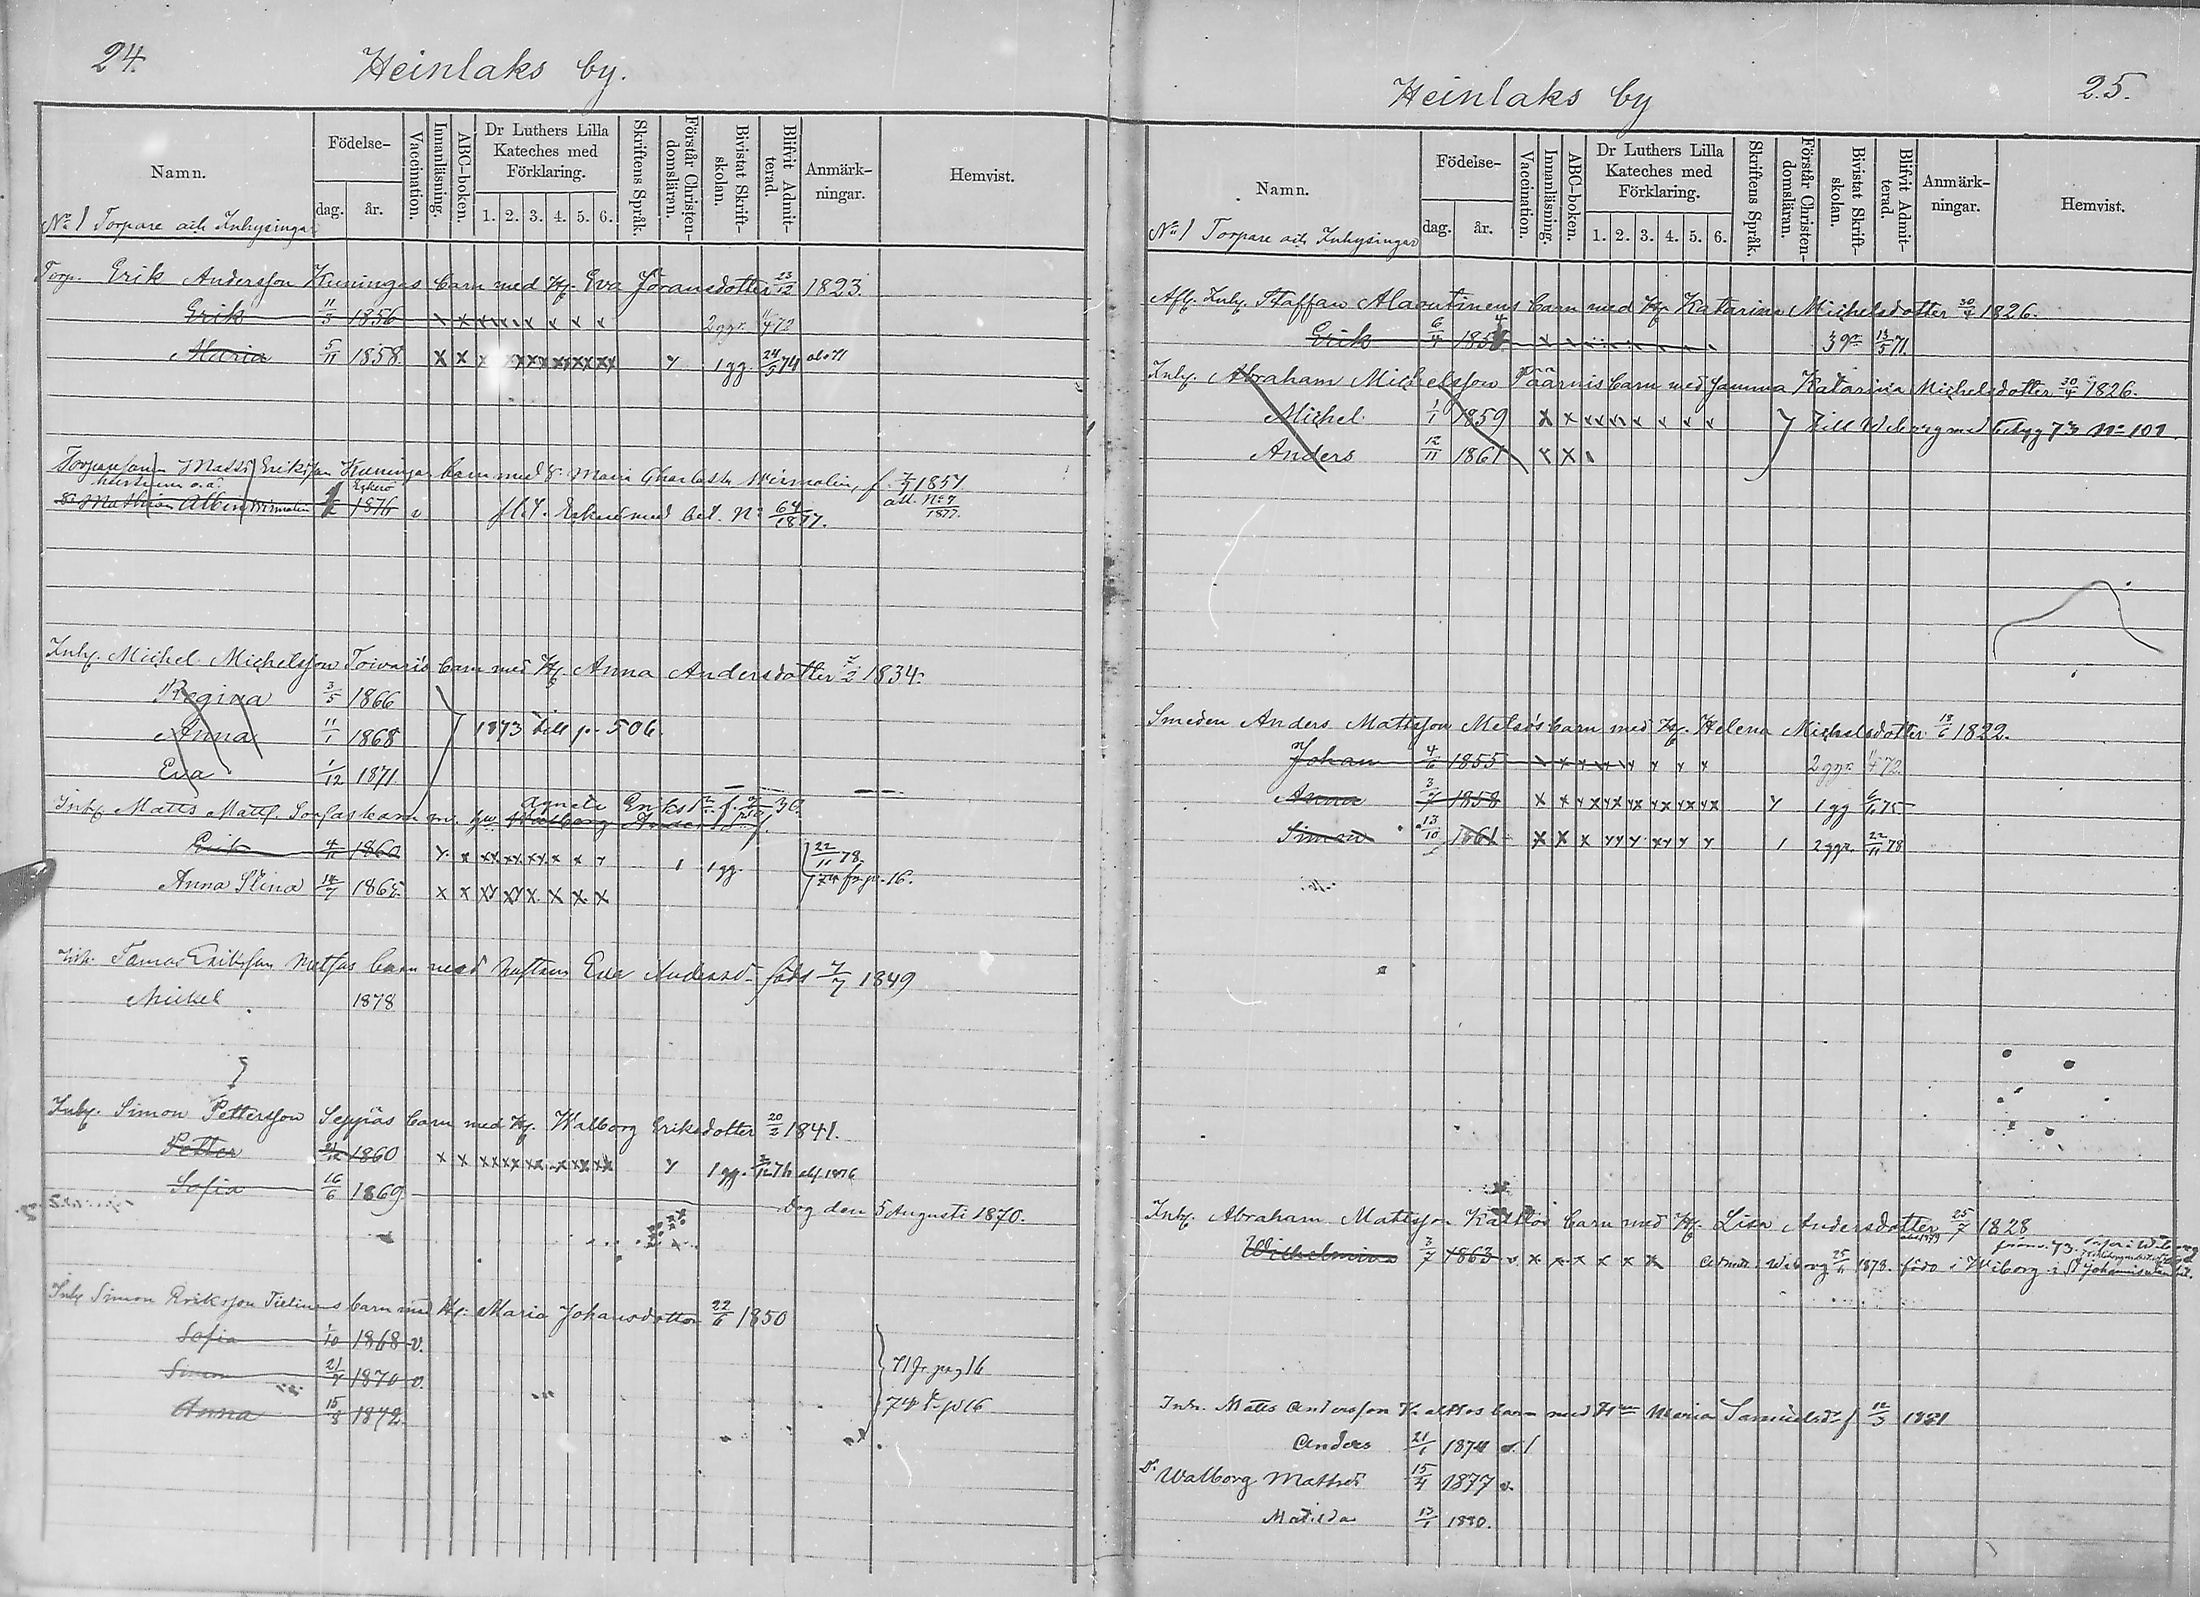 24.
Heinlaks by.
Namn.
Födelse-
dag.
år.
Vaccination.
Innanläsning.
ABC-boken.
Dr Luthers Lilla Kateches med Förklaring.
1. 2. 3. 4. 5. 6.
Skriftens Språk.
Förstår Christen-domsläran.
Bivistat Skrift-skolan.
Blifvit Admit-terad.
Anmärk-ningar.
Hemvist.
No 1 Torpare och Inhysingar
Torp. Erik Andersson Kuningas barn med Hu. Eva Jöransdotter 23/12 1823.
Erik 11/5 1856 2 ggr. 11/4 72
Maria 5/11 1858 1 gg. 24/5 74
Matts Eriksson Kuningas barn med Maria Charlotta Wirmalin, f. 7/7 1851.
Mathias Albin Wirmalin 1876 v med bet. No 64/1877. att. No 7/1877.
Inhy. Michel Michelsson Toivaris barn med Hu. Anna Andersdotter 7/2 1834.
Regina 3/5 1866
Anna 11/1 1868 1873 till p. 506.
Eva 1/12 1871.
Inhy. Matts Matts. barn m. hu. Agneta Eriks
Erik 4/11 1860 1 1 gg. 22/11 78
Anna Stina 14/7 186 74 fr. p. 16.
Inh. Tomas Eriksson barn med hustrun Eva Andersd. född 7/7 1849
Mickel 1878
Inhy. Simon Pettersson Seppäs barn med Hu. Walborg Eriksdotter 20/2 1841.
Petter 1860 1 gg. 1876
Sofia 16/6 1869 Dog den 5 Augusti 1870.
Inhy. Simon Eriksson Tielinens barn med Hu. Maria Johansdotter 22/6 1850
Sofia 1/10 1868 v.
Simon 21/7 1870 v. 71 fr. pag 16
Anna 15/8 1872. 74 p 16
25.
Heinlaks by
Namn.
Födelse-
dag.
år.
Vaccination.
Innanläsning.
ABC-boken.
Dr Luthers Lilla Kateches med Förklaring.
1. 2. 3. 4. 5. 6.
Skriftens Språk.
Förstår Christen-domsläran.
Bivistat Skrift-skolan.
Blifvit Admit-terad.
Anmärk-ningar.
Hemvist.
No 1 Torpare och Inhysingar
Afl. Inhy. Staffan Alaoutinens barn med Hu. Katarina Michelsdotter 30/4 1826.
Erik 6/4 185 3 gr 13/5 71.
Inhy. Abraham Michelsson Päärnis barn med samma Katarina Michelsdotter 30/4 1826.
Michel 1/1 1859 Till Wiborg med betyg 73 No 101
Anders 12/11 1861
Smeden Anders Mattsson Metsös barn med Hu. Helena Michelsdotter 18/6 1822.
Johan 4/6 1855 2 ggr. 11/4 72
Anna 3/7 1858 1 gg 75
Simon 13/10 1861 1 2 ggr. 22/11 78
Inhy. Abraham Mattsson Kalttos barn med Hu. Lisa Andersdotter 25/7 1828
Wilhelmina 3/7 1863 Wiborg 1878. i Wiborg i St Johannis
Inh. Matts Andersson Kalttos barn med Hu. Maria Samuelsd. f 12/3 1821
Anders 21/1 1874 v.
Dr Walborg Mattsd. 15/4 1877 v.
Matilda 13/1 1880.